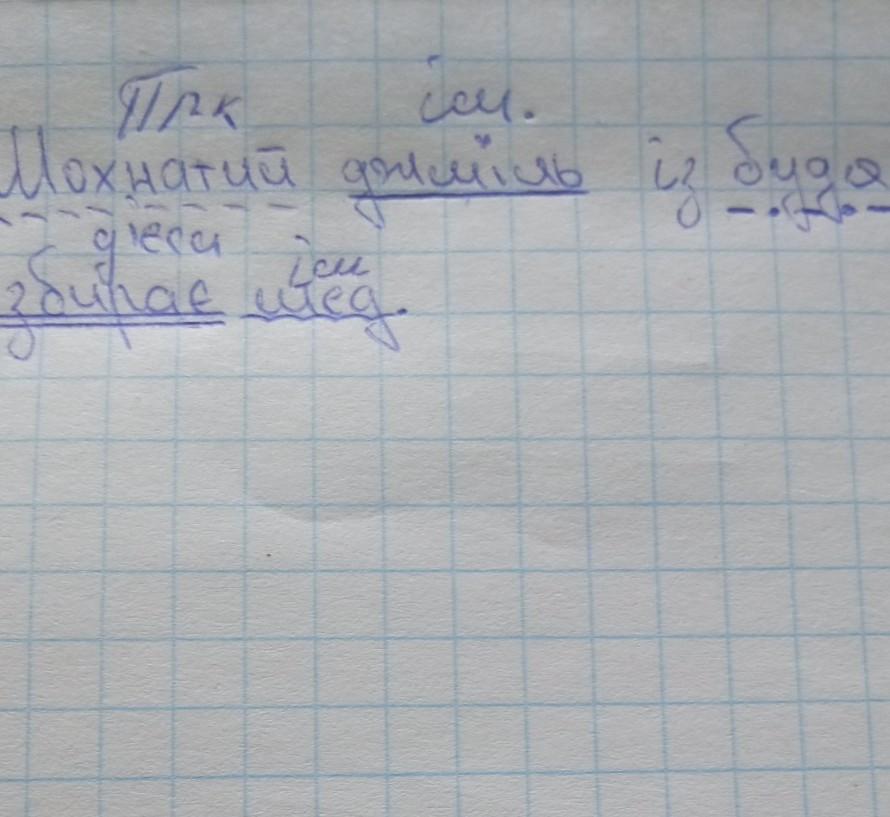 Прк ім.
Мохнатий джміль із будя
дієсл ім
збирає мед.